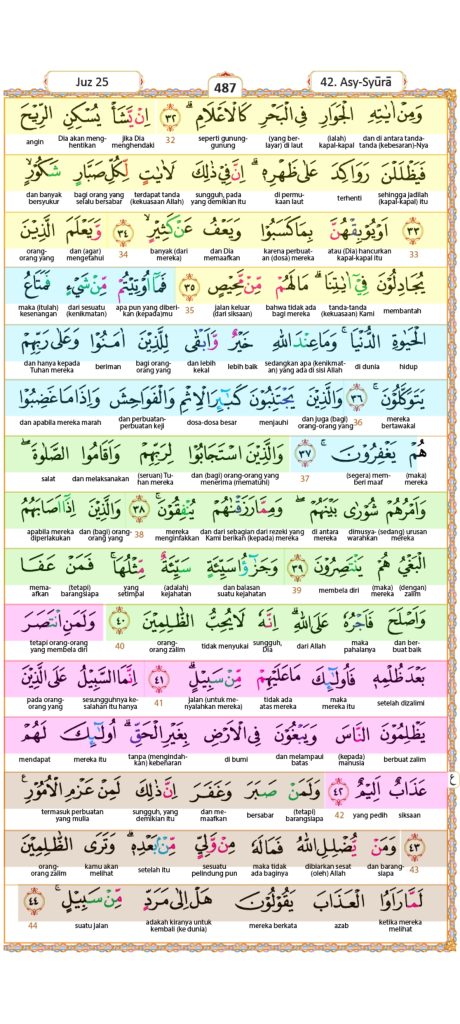 Juz 25
487
42. Asy-Syūrā
وَمِنْ اٰيٰتِهِ الْجَوَارِ فِى الْبَحْرِ كَالْاَعْلَامِ ۗ ٣٢ اِنْ يَّشَأْ يُسْكِنِ الرِّيْحَ
dan di antara tanda-tanda (kebesaran)-Nya (ialah) kapal-kapal (yang ber-layar) di laut seperti gunung-gunung 32 jika Dia menghendaki Dia akan meng-hentikan angin
فَيَظْلَلْنَ رَوَاكِدَ عَلٰى ظَهْرِهٖ ۗ اِنَّ فِيْ ذٰلِكَ لَاٰيٰتٍ لِّكُلِّ صَبَّارٍ شَكُوْرٍۙ
sehingga jadilah (kapal-kapal) itu terhenti di permu-kaan laut sungguh, pada yang demikian itu terdapat tanda (kekuasaan Allah) bagi orang yang selalu bersabar dan banyak bersyukur
٣٣ اَوْ يُوْبِقْهُنَّ بِمَا كَسَبُوْا وَيَعْفُ عَنْ كَثِيْرٍۙ ٣٤ وَّيَعْلَمَ الَّذِيْنَ
33 atau (Dia) hancurkan kapal-kapal itu karena perbuat-an (dosa) mereka dan Dia memaafkan banyak (dari mereka) 34 dan (agar) mengetahui orang-orang yang
يُجَادِلُوْنَ فِيْٓ اٰيٰتِنَاۗ مَا لَهُمْ مِّنْ مَّحِيْصٍ ٣٥ فَمَآ اُوْتِيْتُمْ مِّنْ شَيْءٍ فَمَتَاعُ
membantah tanda-tanda (kekuasaan) Kami bahwa tidak ada bagi mereka jalan keluar (dari siksaan) 35 apa pun yang diberi-kan (kepada)mu dari sesuatu (kenikmatan) maka (itulah) kesenangan
الْحَيٰوةِ الدُّنْيَا ۚ وَمَا عِنْدَ اللّٰهِ خَيْرٌ وَّاَبْقٰى لِلَّذِيْنَ اٰمَنُوْا وَعَلٰى رَبِّهِمْ
hidup di dunia sedangkan apa (kenikmat-an) yang ada di sisi Allah lebih baik dan lebih kekal bagi orang-orang yang beriman dan hanya kepada Tuhan mereka
يَتَوَكَّلُوْنَۚ ٣٦ وَالَّذِيْنَ يَجْتَنِبُوْنَ كَبٰۤىِٕرَ الْاِثْمِ وَالْفَوَاحِشَ وَاِذَا مَا غَضِبُوْا
mereka bertawakal 36 dan (juga) bagi (orang-orang) yang menjauhi dosa-dosa besar dan perbuatan-perbuatan keji dan apabila mereka marah
هُمْ يَغْفِرُوْنَۚ ٣٧ وَالَّذِيْنَ اسْتَجَابُوْا لِرَبِّهِمْ وَاَقَامُوا الصَّلٰوةَۖ
(maka) mereka (segera) mem-beri maaf 37 dan (bagi) orang-orang yang menerima (mematuhi) (seruan) Tu-han mereka dan melaksanakan salat
وَاَمْرُهُمْ شُوْرٰى بَيْنَهُمْۖ وَمِمَّا رَزَقْنٰهُمْ يُنْفِقُوْنَۚ ٣٨ وَالَّذِيْنَ اِذَآ اَصَابَهُمُ
(sedang) urusan mereka dimusya-warahkan di antara mereka dan dari sebagian dari rezeki yang Kami berikan (kepada) mereka mereka menginfakkan 38 dan (bagi) orang-orang yang apabila mereka diperlakukan
الْبَغْيُ هُمْ يَنْتَصِرُوْنَ ٣٩ وَجَزٰۤؤُا سَيِّئَةٍ سَيِّئَةٌ مِّثْلُهَاۚ فَمَنْ عَفَا
(dengan) zalim (maka) mereka membela diri 39 dan balasan suatu kejahatan (adalah) kejahatan yang setimpal (tetapi) barangsiapa mema-afkan
وَاَصْلَحَ فَاَجْرُهٗ عَلَى اللّٰهِ ۗ اِنَّهٗ لَا يُحِبُّ الظّٰلِمِيْنَ ٤٠ وَلَمَنِ انْتَصَرَ
dan ber-buat baik maka pahalanya dari Allah sungguh, Dia tidak menyukai orang-orang zalim 40 tetapi orang-orang yang membela diri
بَعْدَ ظُلْمِهٖ فَاُولٰۤىِٕكَ مَا عَلَيْهِمْ مِّنْ سَبِيْلٍۗ ٤١ اِنَّمَا السَّبِيْلُ عَلَى الَّذِيْنَ
setelah dizalimi maka mereka itu tidak ada atas mereka jalan (untuk me-nyalahkan mereka) 41 sesungguhnya ke-salahan itu hanya pada orang-orang yang
يَظْلِمُوْنَ النَّاسَ وَيَبْغُوْنَ فِى الْاَرْضِ بِغَيْرِ الْحَقِّۗ اُولٰۤىِٕكَ لَهُمْ
berbuat zalim (kepada) manusia dan melampaui batas di bumi tanpa (mengindah-kan) kebenaran mereka itu mendapat
عَذَابٌ اَلِيْمٌ ٤٢ وَلَمَنْ صَبَرَ وَغَفَرَ اِنَّ ذٰلِكَ لَمِنْ عَزْمِ الْاُمُوْرِ ࣖ
ع
siksaan yang pedih 42 (tetapi) barangsiapa bersabar dan me-maafkan sungguh, yang demikian itu termasuk perbuatan yang mulia
٤٣ وَمَنْ يُّضْلِلِ اللّٰهُ فَمَا لَهٗ مِنْ وَّلِيٍّ مِّنْۢ بَعْدِهٖ ۗ وَتَرَى الظّٰلِمِيْنَ
43 dan barang-siapa dibiarkan sesat (oleh) Allah maka tidak ada baginya sesuatu pelindung pun setelah itu kamu akan melihat orang-orang zalim
لَمَّا رَاَوُا الْعَذَابَ يَقُوْلُوْنَ هَلْ اِلٰى مَرَدٍّ مِّنْ سَبِيْلٍۚ ٤٤
ketika mereka melihat azab mereka berkata adakah kiranya untuk kembali (ke dunia) suatu jalan 44